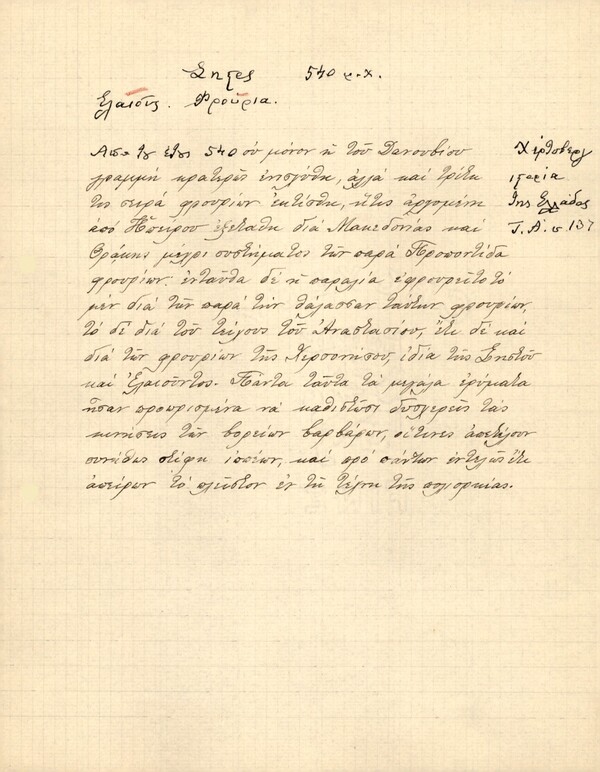 Σηςτος 540 μ.χ.
Ελαιούς. Φρούρια.
Από το έτος 540 οὐ μόνον ἡ τοῦ Δανουβίου
γραμμή κρατερῶς ἐνισχύθη, ἀλλά καί τρίτη
τις σειρά φρουρίων ἐκτίσθη, ἥτις ἀρχομένη
ἀπό Ἠπείρου ἐξετάθη διά Μακεδονίας καί
Θράκης μέχρι συστήματος τῶν παρά Προποντίδα
φρουρίων. ἐνταῦθα δέ ἡ παραλία ἐφρουρεῖτο τό
μέν διά τῶν παρά τήν θάλασσαν ταύτην φρουρίων,
τό δέ διά τοῦ τείχους τοῦ Ἀναστασίου, ἔτι δέ καί
διά τῶν φρουρίων τῆς Χερσονήσου, ἰδίᾳ τῆς Σηστοῦ
καί Ἐλαιοῦντος. Πάντα ταῦτα τά μεγάλα ἐρύματα
ἦσαν προωρισμένα νά καθιστῶσι δυσχερεῖς τάς
κινήσεις τῶν βορείων βαρβάρων, οἵτινες ἀπετέλουν
συνήθως στίφη ἱππέων, καί πρό πάντων ἐντελῶς ἔτι
ἀπείρων τό πλεῖστον ἐν τῇ τέχνῃ τῆς πολιορκίας.
Χέρτσβεργ
ιστορία
της Ελλάδος
Τ. Α. σ 137